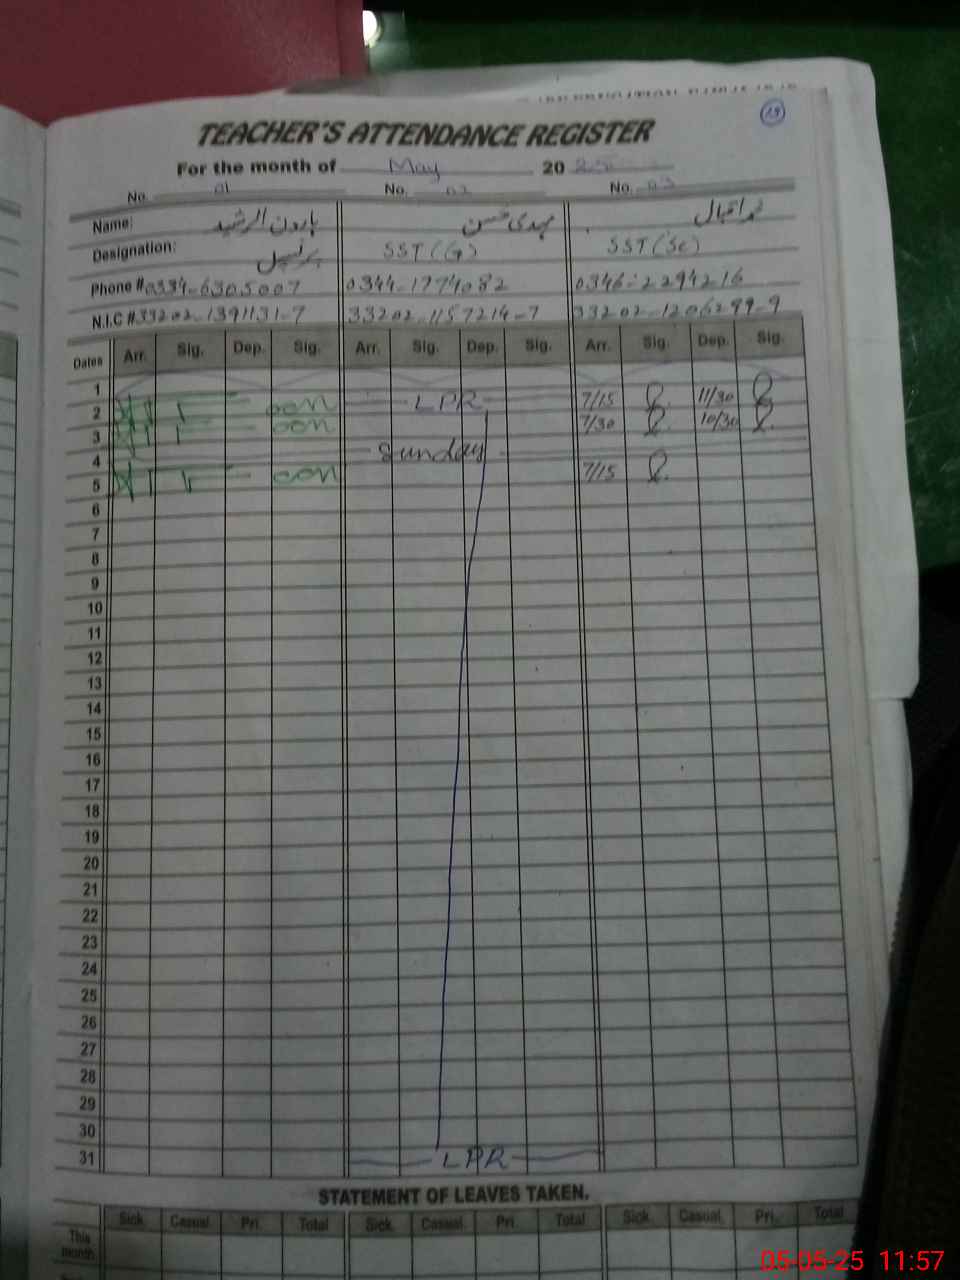 19
TEACHER'S ATTENDANCE REGISTER
For the month of May 20 25
No. 01 No. 02 No. 03
Name: ہارون الرشید مہدی حسن محمد اقبال
Designation: پرنسپل SST(G) SST(Sc)
Phone # 0334-6305007 0344-1774082 0346-2294216
N.I.C # 33202-1391131-7 33202-1157214-7 33202-1206299-9
Dates Arr. Sig. Dep. Sig. Arr. Sig. Dep. Sig. Arr. Sig. Dep. Sig.
1
2 LPR 7/15 11/30
3 7/30 10/30
4 Sunday
5 7/15
6
7
8
9
10
11
12
13
14
15
16
17
18
19
20
21
22
23
24
25
26
27
28
29
30
31 LPR
STATEMENT OF LEAVES TAKEN.
Sick. Casual. Pri. Total Sick. Casual. Pri. Total Sick. Casual. Pri. Total
This
month
05-05-25 11:57